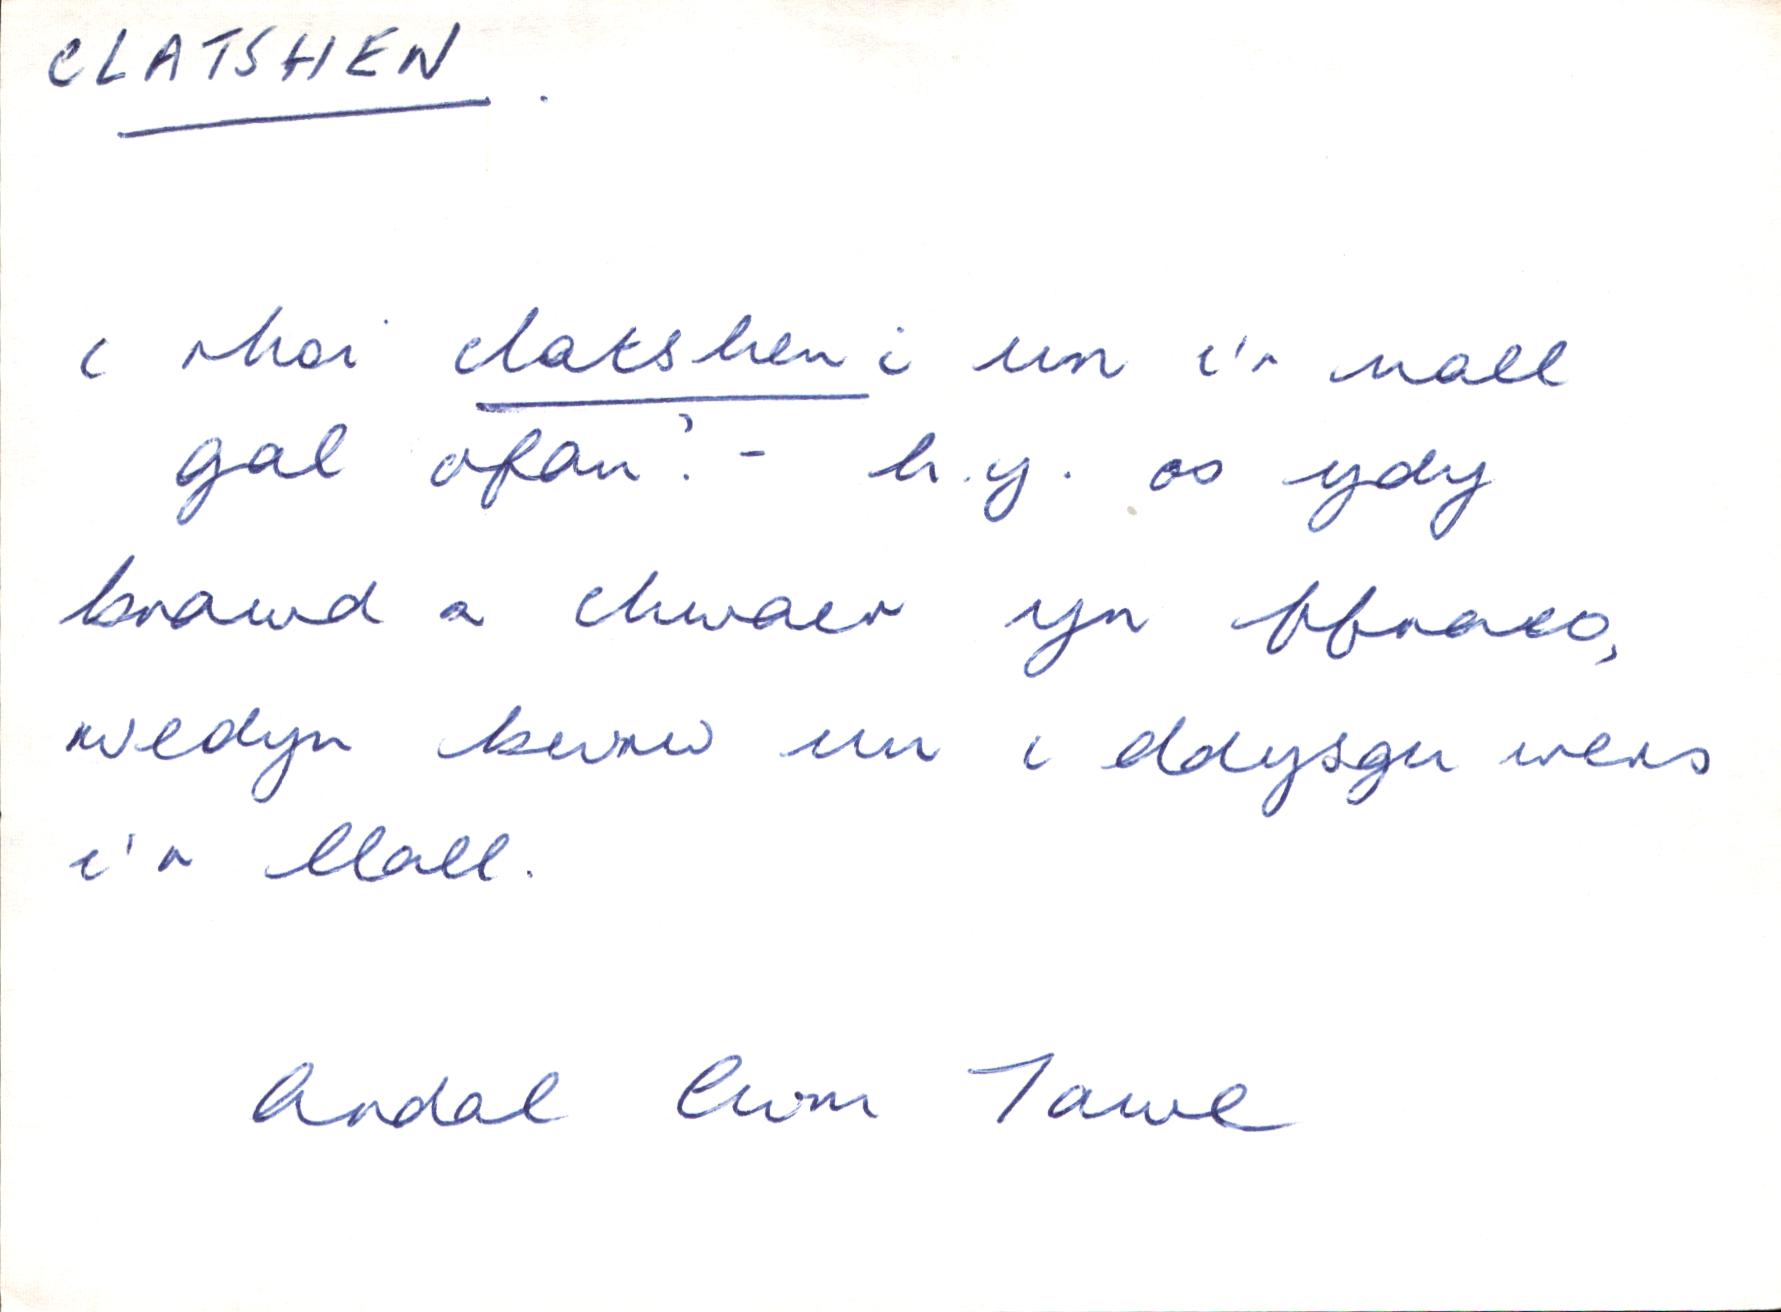 CLATSHEN.
i rhoi clatshen i un i'r nall
gal ofan' . - h.y. os ydy
brawd a chwaer yn ffraeo,
wedyn bwrw un i ddysgu wers
i'r llall.
Ardal Cwm Tawe